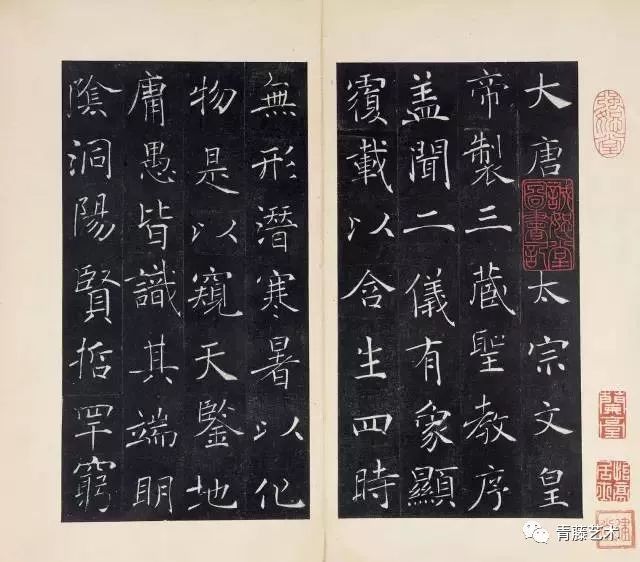 大唐太宗文皇
帝製三蔵聖教序
盖聞二儀有象顯
覆載以含生四時
無形潛寒暑以化
物是以窺天鑒地
庸愚皆識其端明
陰洞陽賢哲罕窮
青藤艺术